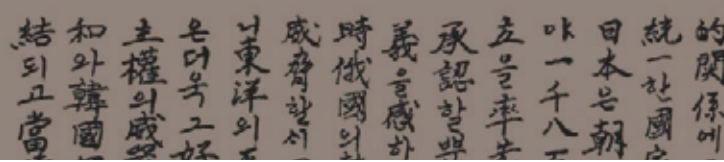 的關係에
統一한國
日本은朝
야一千八百
立을率先
承認할뿐
義을感하
時俄國의
威脅할시
니東洋의
은더욱그好
主權의威
和와韓國
結되고當